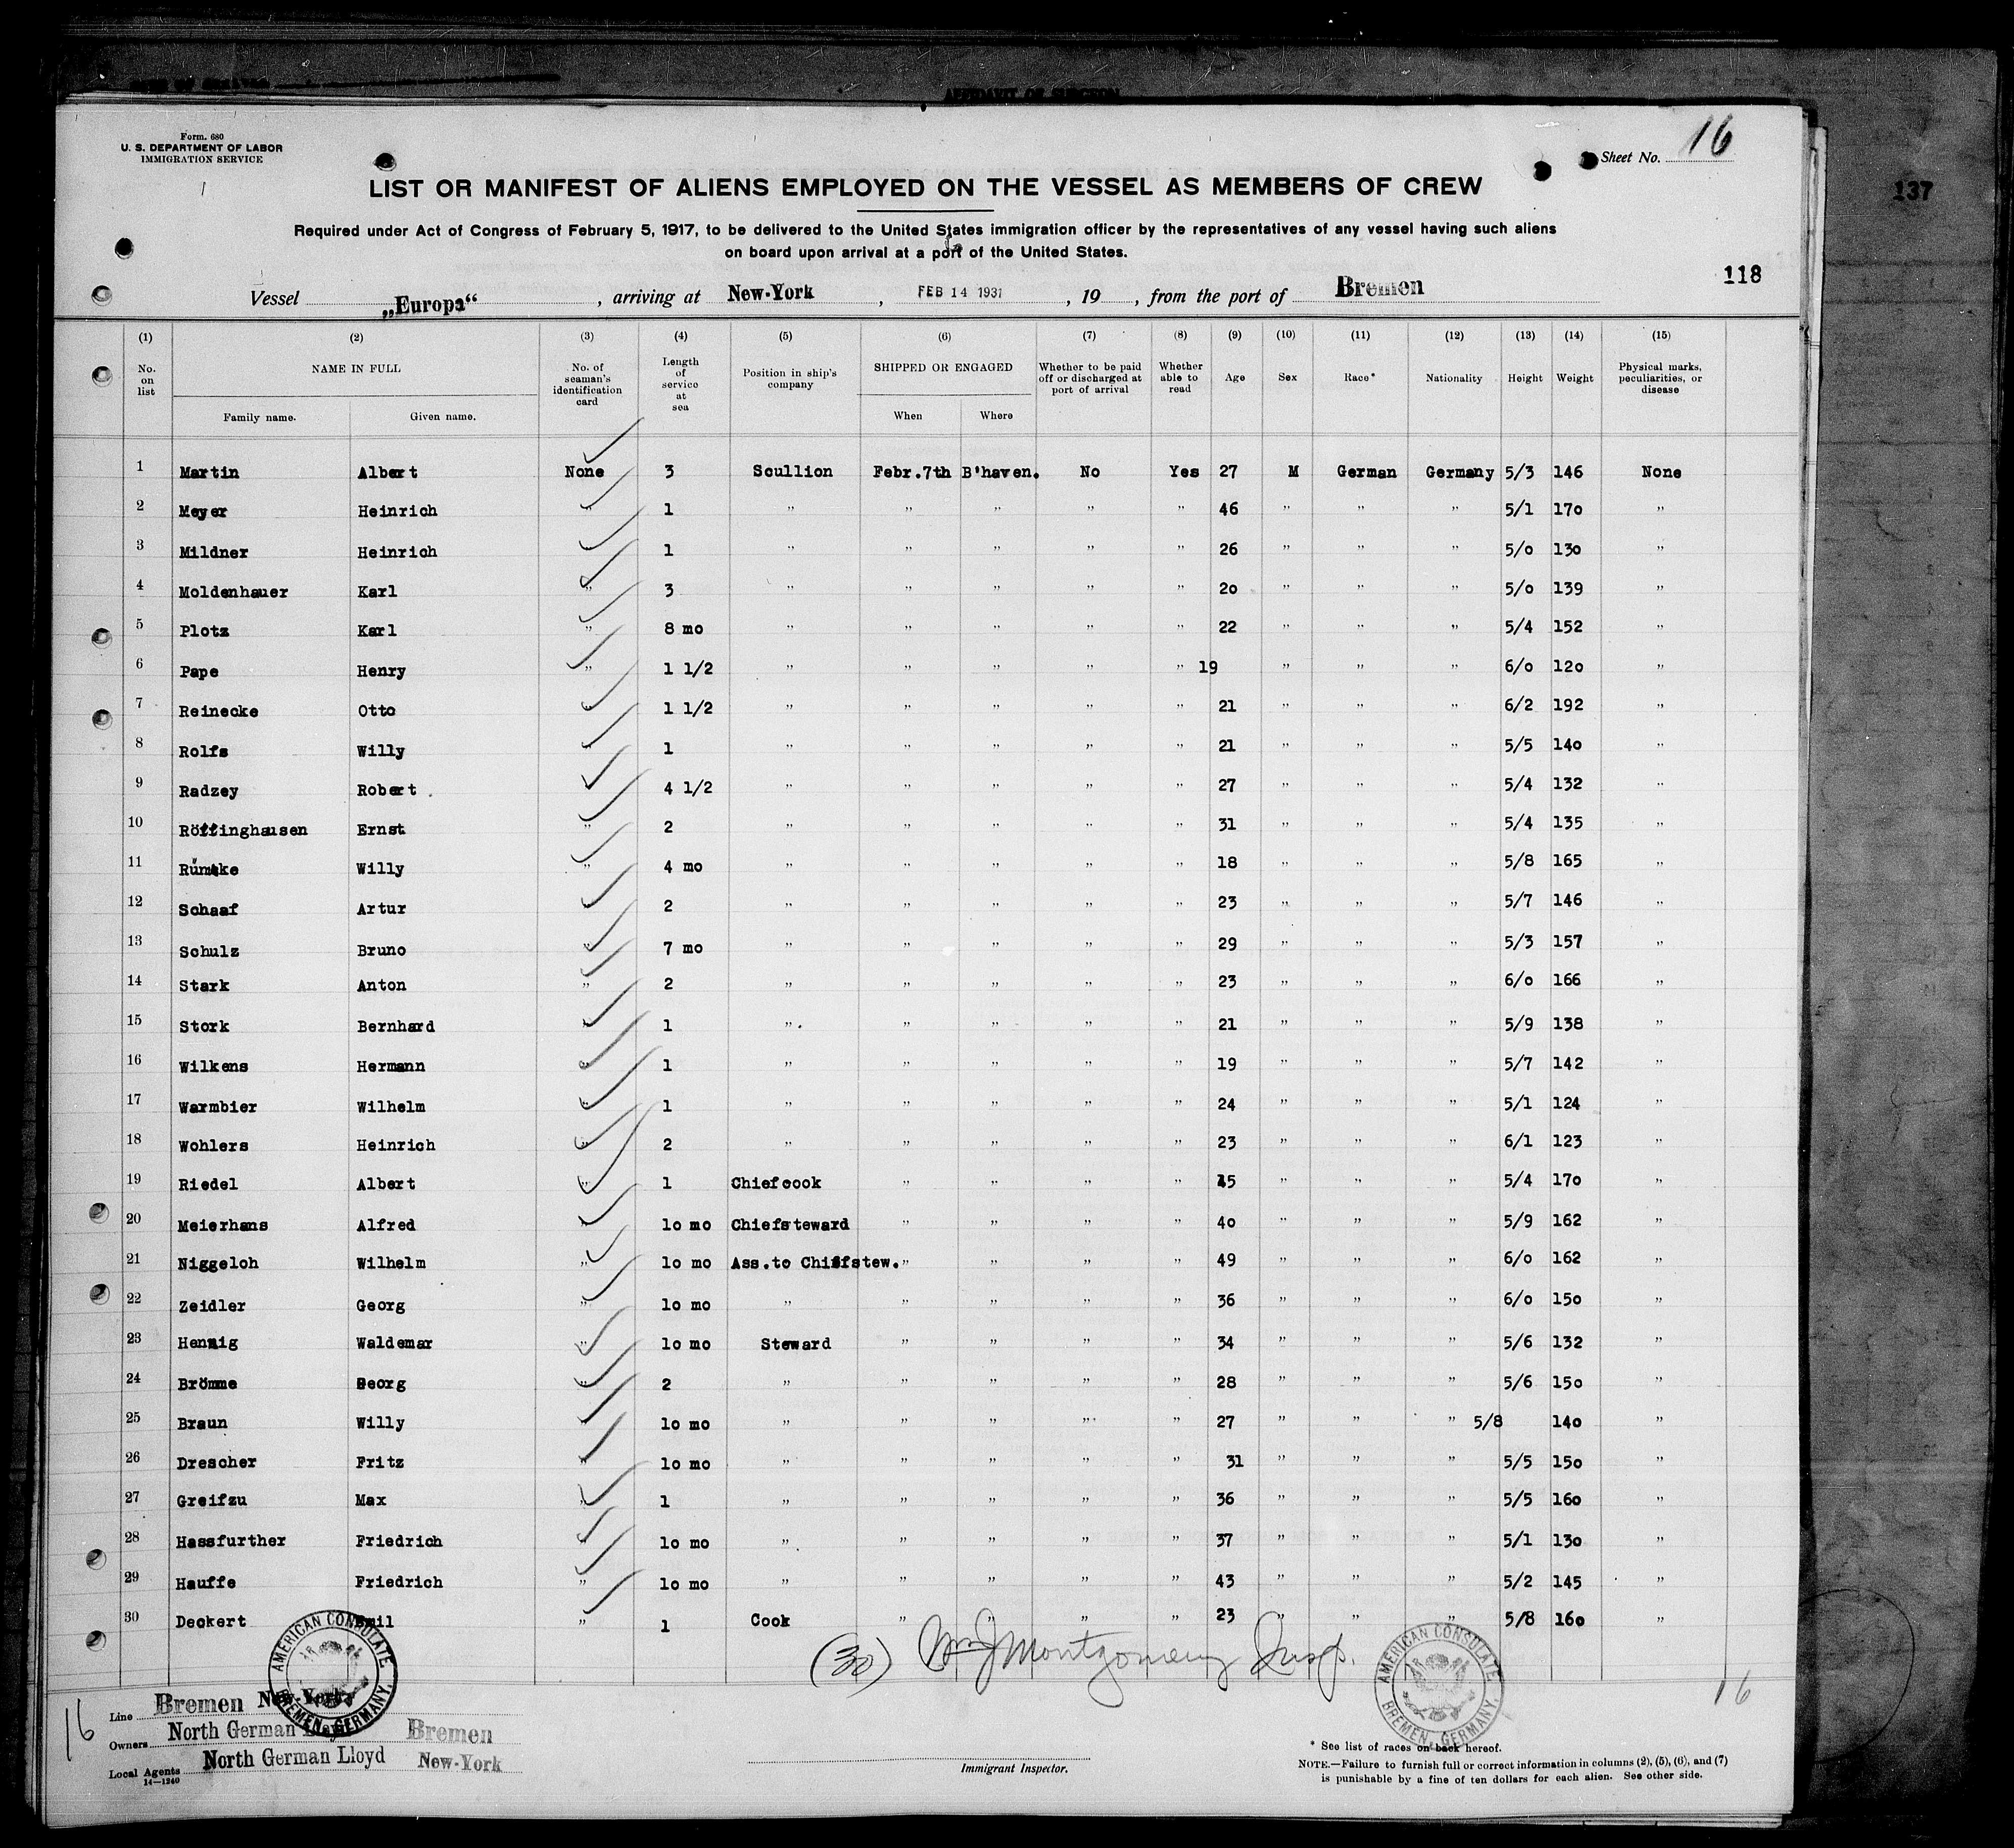 AFFIDAVIT OF SURGEON
Form. 680
U. S. DEPARTMENT OF LABOR
IMMIGRATION SERVICE
Sheet No. 16
137
LIST OR MANIFEST OF ALIENS EMPLOYED ON THE VESSEL AS MEMBERS OF CREW
Required under Act of Congress of February 5, 1917, to be delivered to the United States immigration officer by the representatives of any vessel having such aliens
on board upon arrival at a port of the United States.
118
Vessel „Europa“, arriving at New-York, FEB 14 1931, 19, from the port of Bremen
(1) (2) (3) (4) (5) (6) (7) (8) (9) (10) (11) (12) (13) (14) (15)
No. on list NAME IN FULL Family name. Given name. No. of seaman's identification card Length of service at sea Position in ship's company SHIPPED OR ENGAGED When Where Whether to be paid off or discharged at port of arrival Whether able to read Age Sex Race* Nationality Height Weight Physical marks, peculiarities, or disease
1 Martin Albert None 3 Scullion Febr.7th B'haven. No Yes 27 M German Germany 5/3 146 None
2 Meyer Heinrich " 1 " " " " " 46 " " " 5/1 170 "
3 Mildner Heinrich " 1 " " " " " 26 " " " 5/0 130 "
4 Moldenhauer Karl " 3 " " " " " 20 " " " 5/0 139 "
5 Plotz Karl " 8 mo " " " " " 22 " " " 5/4 152 "
6 Pape Henry " 1 1/2 " " " " " 19 " " " 6/0 120 "
7 Reinecke Otto " 1 1/2 " " " " " 21 " " " 6/2 192 "
8 Rolfs Willy " 1 " " " " " 21 " " " 5/5 140 "
9 Radzey Robert " 4 1/2 " " " " " 27 " " " 5/4 132 "
10 Ernst " 2 " " " " " 31 " " " 5/4 135 "
11 Willy " 4 mo " " " " " 18 " " " 5/8 165 "
12 Schaaf Artur " 2 " " " " " 23 " " " 5/7 146 "
13 Schulz Bruno " 7 mo " " " " " 29 " " " 5/3 157 "
14 Stark Anton " 2 " " " " " 23 " " " 6/0 166 "
15 Stork Bernhard " 1 " " " " " 21 " " " 5/9 138 "
16 Wilkens Hermann " 1 " " " " " 19 " " " 5/7 142 "
17 Warmbier Wilhelm " 1 " " " " " 24 " " " 5/1 124 "
18 Wohlers Heinrich " 2 " " " " " 23 " " " 6/1 123 "
19 Riedel Albert " 1 Chiefcook " " " " " " " 5/4 170 "
20 Meierhans Alfred " 10 mo Chiefsteward " " " " 40 " " " 5/9 162 "
21 Niggeloh Wilhelm " 10 mo Ass.to Chiefstew. " " " " 49 " " " 6/0 162 "
22 Zeidler Georg " 10 mo " " " " " 36 " " " 6/0 150 "
23 Hennig Waldemar " 10 mo Steward " " " " 34 " " " 5/6 132 "
24 Brömme Georg " 2 " " " " " 28 " " " 5/6 150 "
25 Braun Willy " 10 mo " " " " " 27 " " " 5/8 140 "
26 Drescher Fritz " 10 mo " " " " " 31 " " " 5/5 150 "
27 Greifzu Max " 1 " " " " " 36 " " " 5/5 160 "
28 Hassfurther Friedrich " 10 mo " " " " " 37 " " " 5/1 130 "
29 Hauffe Friedrich " 10 mo " " " " " 43 " " " 5/2 145 "
30 Deckert Emil " 1 Cook " " " " 23 " " " 5/8 160 "
(30) Wm J Montgomery Insp.
AMERICAN CONSULATE BREMEN, GERMANY.
AMERICAN CONSULATE BREMEN, GERMANY.
16
16
Line Bremen New-York
Owners North German Lloyd Bremen
Local Agents North German Lloyd New-York
14—1240
Immigrant Inspector.
* See list of races on back hereof.
NOTE.—Failure to furnish full or correct information in columns (2), (5), (6), and (7)
is punishable by a fine of ten dollars for each alien. See other side.